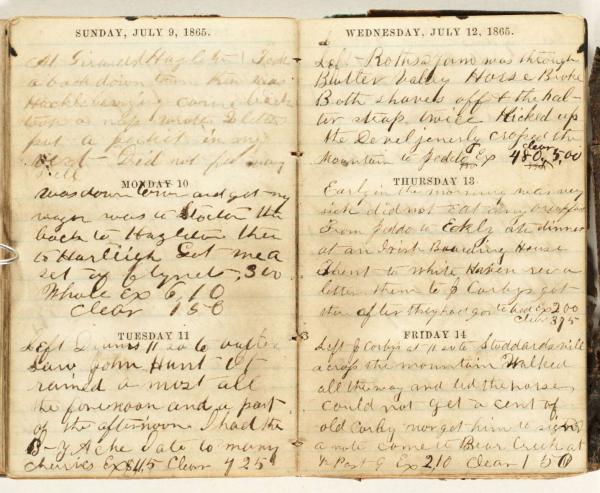 SUNDAY, JULY 9, 1865.
At Girard Hazleton Took
a back down town then was
Huckleberrying came back
took a nap wrote letter
put a pocket in my
vest Did not feel very
well
MONDAY 10
was down town and got my
wagon was to Stocton then
back to Hazleton then
to Harleigh Got me a
set of flynets, 300
Whole Ex 6,10
Clear 150
TUESDAY 11
Left 11 to 6 after
Saw John Hunt it
rained a most all
the forenoon and a part
of the afternoon I had the
B-y Ache Date to many
cherries Ex 845 Clear 425
WEDNESDAY, JULY 12, 1865.
Left was through
Butler Valley Horse Broke
Both shaves off & the hal-
ter strap twice Kicked up
the Devil jenerly crossed the
Mountain to Jeddo Ex 480, clear 5,00
THURSDAY 13
Early in the morning was very
sick did not eat any breakfast
From Jeddo to Eckly ate dinner
at an Irish Boarding House
Then to White Haven rec a
letter then to J Corbys got
there after they had gon to bed Ex 200
Clear 375
FRIDAY 14
Left J Corbys at 11 to Stoddardsville
across the mountain Walked
all the way and led the horse
could not get a cent of
old Corby nor get him to sign
a note come to Bear Creek at
Ex 210 Clear 150